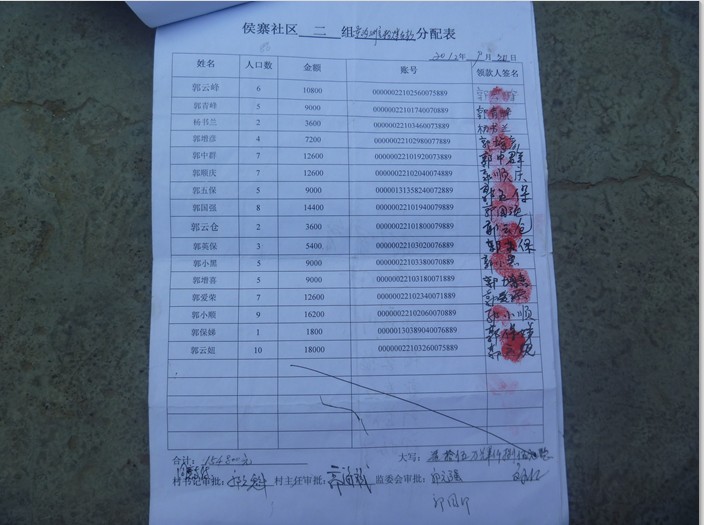 侯寨社区 二 组 分配表
2012年 月 日
姓名 人口数 金额 账号 领款人签名
郭云峰 6 10800 00000022102560075889
郭青峰 5 9000 00000022101740070889
杨书兰 2 3600 00000022103460073889 杨书兰
郭增彦 4 7200 00000022102980077889 郭增彦
郭中群 7 12600 00000022101920073889 郭中群
郭顺庆 7 12600 00000022102040074889 郭顺庆
郭五保 5 9000 00000131358240072889 郭五保
郭国强 8 14400 00000022101940079889 郭国强
郭云仓 2 3600 00000022101800079889 郭云仓
郭英保 3 5400 00000022103020076889 郭英保
郭小黑 5 9000 00000022103380070889 郭小黑
郭增喜 5 9000 00000022103180071889 郭增喜
郭爱荣 7 12600 00000022102340071889
郭小顺 9 16200 00000022102060070889 郭小顺
郭保娣 1 1800 00000130389040076889
郭云妞 10 18000 00000022103260075889
合计：154800元 大写：
村书记审批： 村主任审批： 监委会审批：